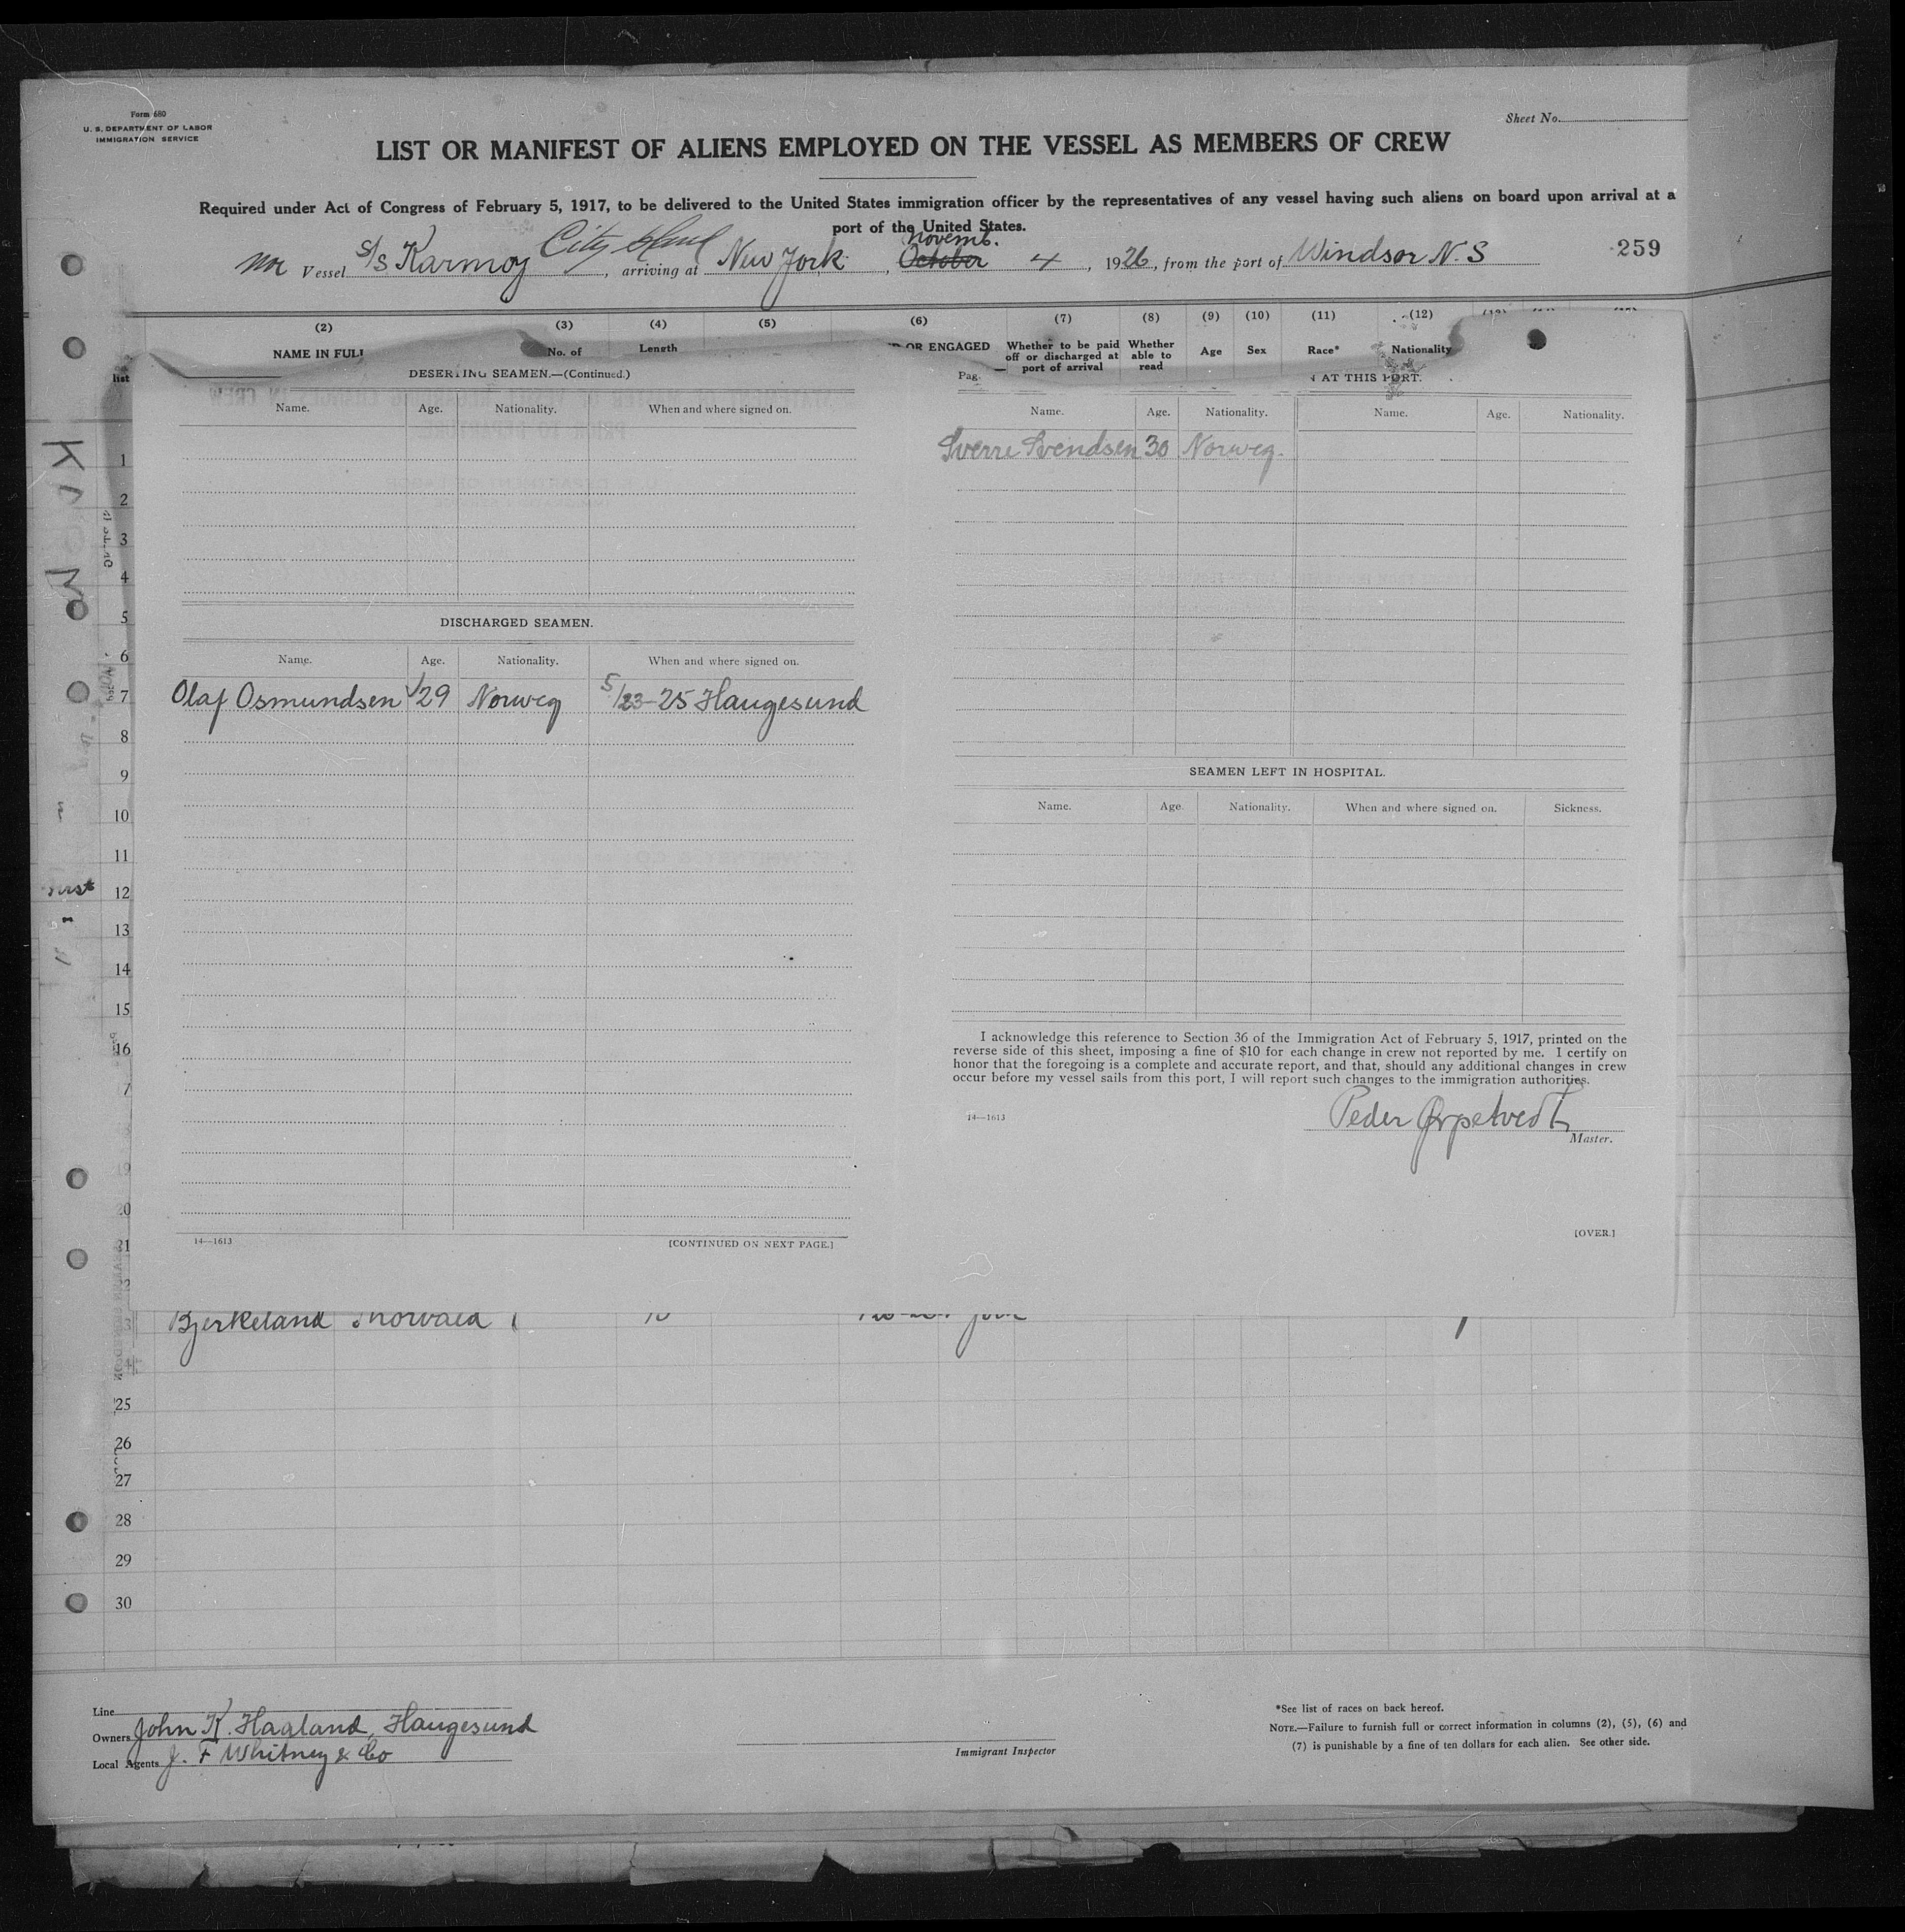 Form 680
U. S. DEPARTMENT OF LABOR
IMMIGRATION SERVICE
Sheet No.
LIST OR MANIFEST OF ALIENS EMPLOYED ON THE VESSEL AS MEMBERS OF CREW
Required under Act of Congress of February 5, 1917, to be delivered to the United States immigration officer by the representatives of any vessel having such aliens on board upon arrival at a
port of the United States.
Vessel S/S Karmoy City Island, arriving at New York, October Novemb. 4, 1926, from the port of Windsor N.S
259
(2) (3) (4) (5) (6) (7) (8) (9) (10) (11) (12)
NAME IN FULL No. of Length OR ENGAGED Whether to be paid off or discharged at port of arrival Whether able to read Age Sex Race* Nationality
list
DESERTING SEAMEN.—(Continued.)
Name. Age. Nationality. When and where signed on.
DISCHARGED SEAMEN.
Name. Age. Nationality. When and where signed on.
Olaf Osmundsen 29 Norweg 5/23-25 Haugesund
14—1613 [CONTINUED ON NEXT PAGE.]
Pag. AT THIS PORT.
Name. Age. Nationality. Name. Age. Nationality.
Sverre Svendsen 30 Norweg.
SEAMEN LEFT IN HOSPITAL.
Name. Age. Nationality. When and where signed on. Sickness.
I acknowledge this reference to Section 36 of the Immigration Act of February 5, 1917, printed on the
reverse side of this sheet, imposing a fine of $10 for each change in crew not reported by me. I certify on
honor that the foregoing is a complete and accurate report, and that, should any additional changes in crew
occur before my vessel sails from this port, I will report such changes to the immigration authorities.
14—1613
Peder Ørpetvedt
Master.
[OVER.]
1
2
3
4
5
6
7
8
9
10
11
12
13
14
15
16
7
19
20
21
Bjerkeland Thorvald
25
26
27
28
29
30
Line
Owners John K. Haaland, Haugesund
Local Agents J. F Whitney & Co
Immigrant Inspector
*See list of races on back hereof.
NOTE.—Failure to furnish full or correct information in columns (2), (5), (6) and
(7) is punishable by a fine of ten dollars for each alien. See other side.